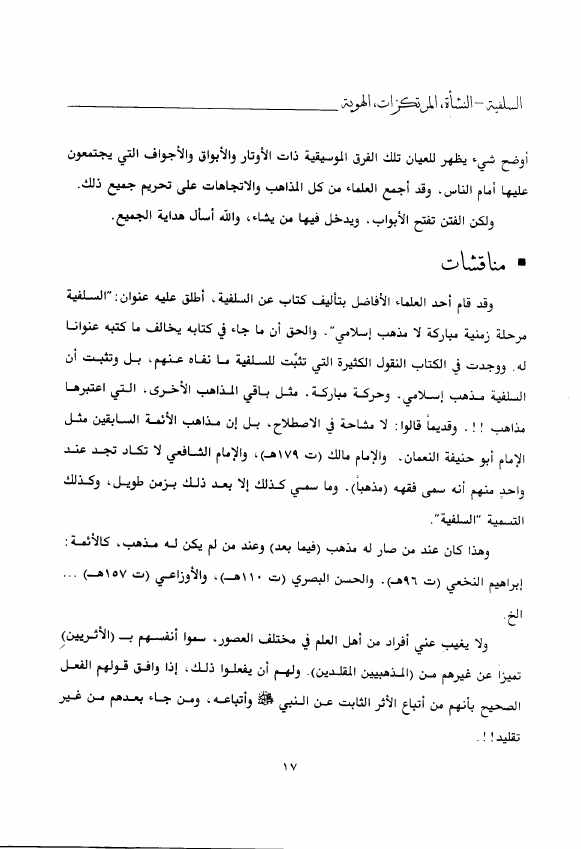 السلفية – النشأة، المرتكزات، الهوية
أوضح شيء يظهر للعيان تلك الفرق الموسيقية ذات الأوتار والأبواق والأجواف التي يجتمعون
عليها أمام الناس. وقد أجمع العلماء من كل المذاهب والاتجاهات على تحريم جميع ذلك.
ولكن الفتن تفتح الأبواب. ويدخل فيها من يشاء، والله أسأل هداية الجميع.
▪ مناقشات
وقد قام أحد العلماء الأفاضل بتأليف كتاب عن السلفية، أطلق عليه عنوان: "السلفية
مرحلة زمنية مباركة لا مذهب إسلامي". والحق أن ما جاء في كتابه يخالف ما كتبه عنوانا
له. ووجدت في الكتاب النقول الكثيرة التي تثبِّت للسلفية ما نفاه عنهم، بل وتثبت أن
السلفية مذهب إسلامي. وحركة مباركة. مثل باقي المذاهب الأخرى، التي اعتبرها
مذاهب !!. وقديماً قالوا: لا مشاحة في الاصطلاح، بل إن مذاهب الأئمة السابقين مثل
الإمام أبو حنيفة النعمان. والإمام مالك (ت ١٧٩هـ)، والإمام الشافعي لا تكاد تجد عند
واحدٍ منهم أنه سمى فقهه (مذهباً). وما سمي كذلك إلا بعد ذلك بزمن طويل، وكذلك
التسمية "السلفية".
وهذا كان عند من صار له مذهب (فيما بعد) وعند من لم يكن له مذهب، كالأئمة:
إبراهيم النخعي (ت ٩٦هـ). والحسن البصري (ت ١١٠هـ)، والأوزاعي (ت ١٥٧هـ) ...
الخ.
ولا يغيب عني أفراد من أهل العلم في مختلف العصور، سموا أنفسهم بـ (الأثريين)
تميزاً عن غيرهم من (المذهبيين المقلدين). ولهم أن يفعلوا ذلك، إذا وافق قولهم الفعل
الصحيح بأنهم من أتباع الأثر الثابت عن النبي ﷺ وأتباعه، ومن جاء بعدهم من غير
تقليد!!.
١٧